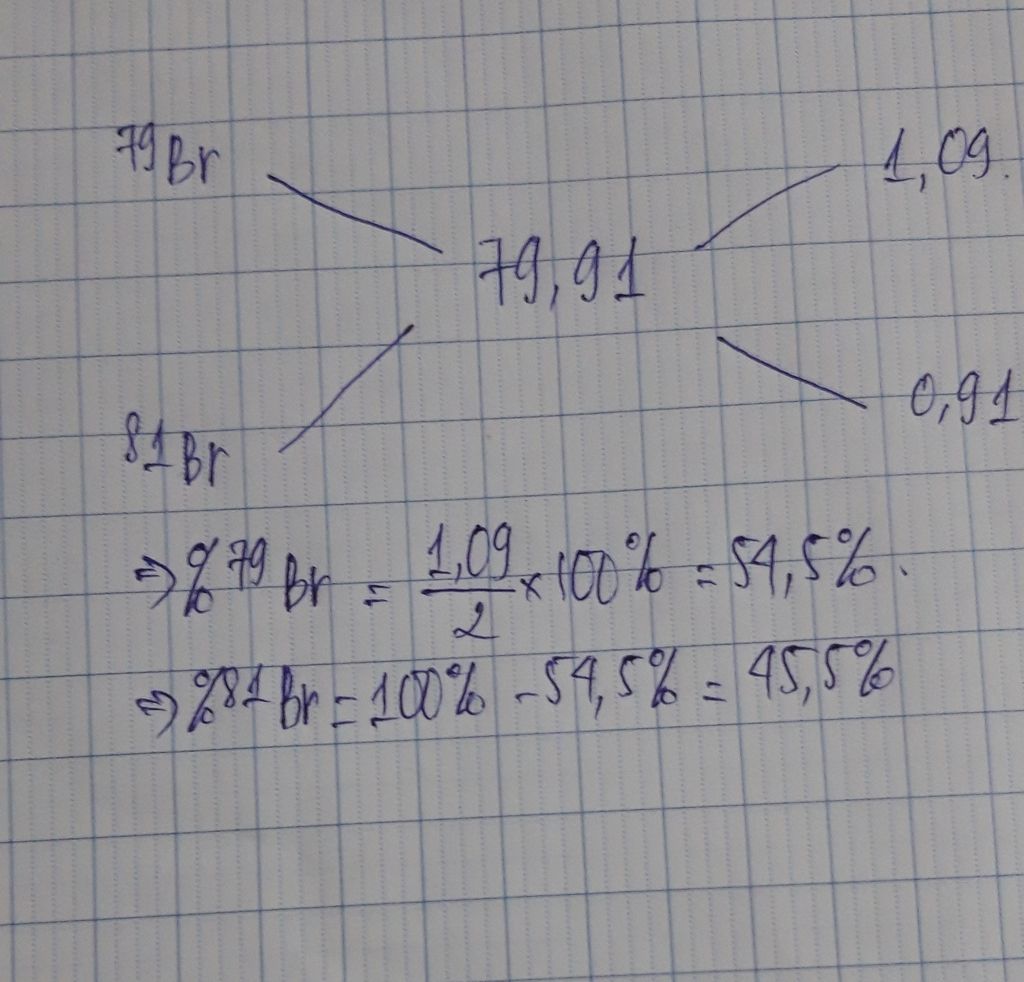 ⁷⁹Br 1,09.
79,91
⁸¹Br 0,91
⇒ % ⁷⁹Br = 1,09/2 × 100% = 54,5%.
⇒ % ⁸¹Br = 100% - 54,5% = 45,5%